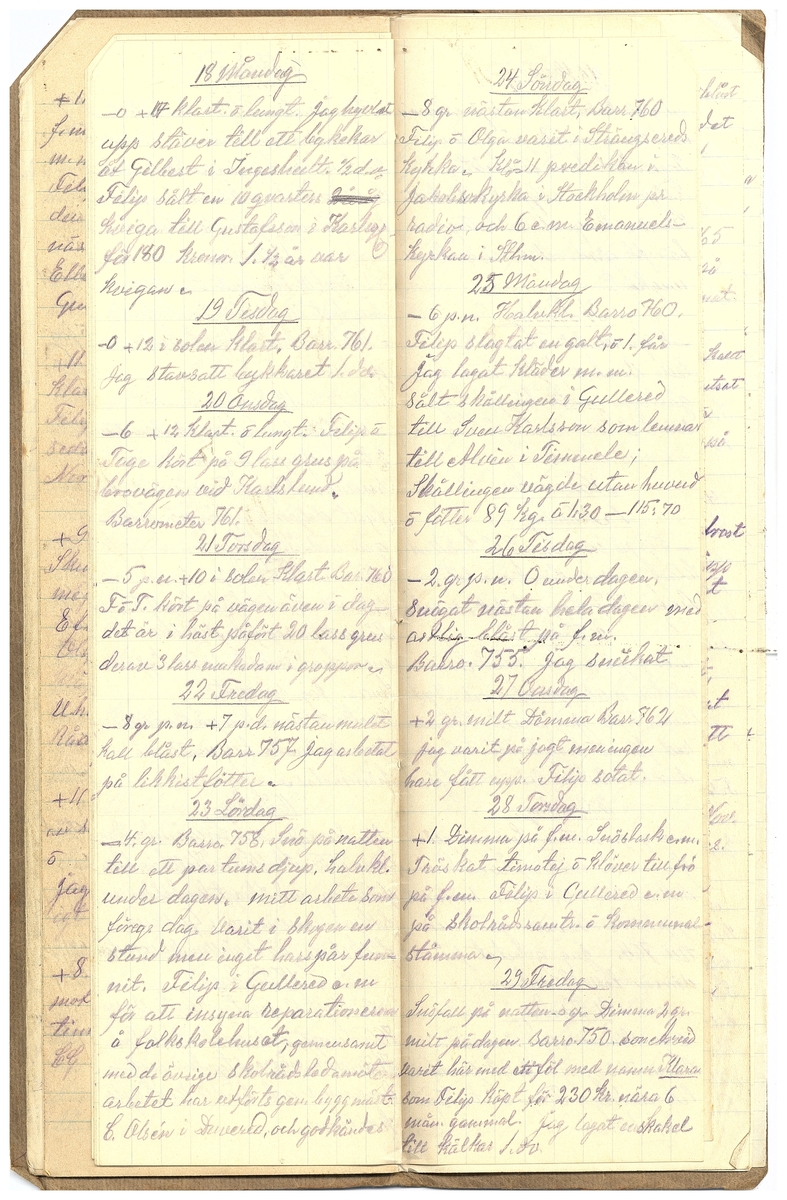 18 Måndag
-0 +14 klart. ō lungt. Jag hyvlat
upp stäver till ett bykekar
åt Gilbert i Ingeshult. ½ d.v.
Filip sålt en 10 quarters
kviga till Gustafsson i Karlup
för 180 Kronor. 1.½ år var
kvigan.
19 Tisdag
-0 +12 i solen klart. Barr. 761.
Jag stavsatt bykkaret 1. dv.
20 Onsdag
-6 +12 klart. ō lungt. Filip ō
Tage kört på 9 lass grus på
brovägen vid Karlslund.
Barrometer 761.
21 Torsdag
-5 p.n. +10 i solen Klart Bar. 760
F ō T. kört på vägen även i dag
det är i höst påfört 20 lass grus
derav 3 lass makadam i groppor.
22 Fredag
-8 gr p.n. +7 p.d. nästan mulet
kall blåst, Barr 757. Jag arbetat
på likkistfötter.
23 Lördag
-4. gr. Barro. 758. Snö på natten
till ett par tums djup. halvkl.
under dagen. mitt arbete som
föreg. dag varit i skogen en
stund men inget harspår fun-
nit. Filip i Gullered e.m
för att insyna reparationerna
å folkskolehuset, gemensamt
med de övrige skolrådsledamöter
arbetet har utförts gen. byggmäst.
C. Olsén i Duvered, och godkändes
24 Söndag
-8 gr nästan Klart, Barr 760
Filip ō Olga varit i Strängsereds
kyrka. Kl. 11 predikan i
Jakobskyrka i Stockholm pr
radio, och 6 e.m. Emanuels-
kyrkan i Sthm.
25 Måndag
-6 p.n. Halvkl. Barro 760.
Filip slagtat en galt, ō 1. får
Jag lagat kläder m.m.
Sålt skållingen i Gullered
till Sven Karlsson som lemnar
till Alvin i Timmele;
Skållingen vägde utan huvud
ō fötter 89 kg. ā 1:30 — 115:70
26 Tisdag
-2. gr p.n. 0 under dagen.
Snögat nästan hela dagen med
blåst på f.m.
Barro. 755. Jag snickat
27 Onsdag
+2 gr. milt Dimma Barr 762
jag varit på jagt men ingen
hare fått upp. Filip sotat.
28 Torsdag
+1. Dimma på f.m. Snöslask e.m.
Tröskat timotej ō klöver till frö
på f.m. Filip i Gullered e.m
på skolrådssamtr. ō Kommunal-
stämma
29 Fredag
Snöfall på natten. 0 gr. Dimma 2 gr.
milt på dagen. Barro 750.
varit här med föl med namn Klara
som Filip köpt för 230 Kr. nära 6
mån. gammal. Jag lagat en skakel
till kälkar 1. dv.